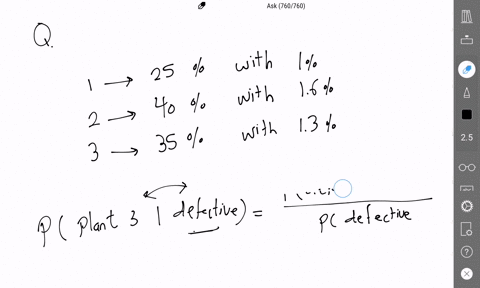 Ask (760/760)
Q.
1 → 25 % with 1%
2 → 40 % with 1.6%
3 → 35 % with 1.3%
P( plant 3 | defective) =
P( defective
2.5